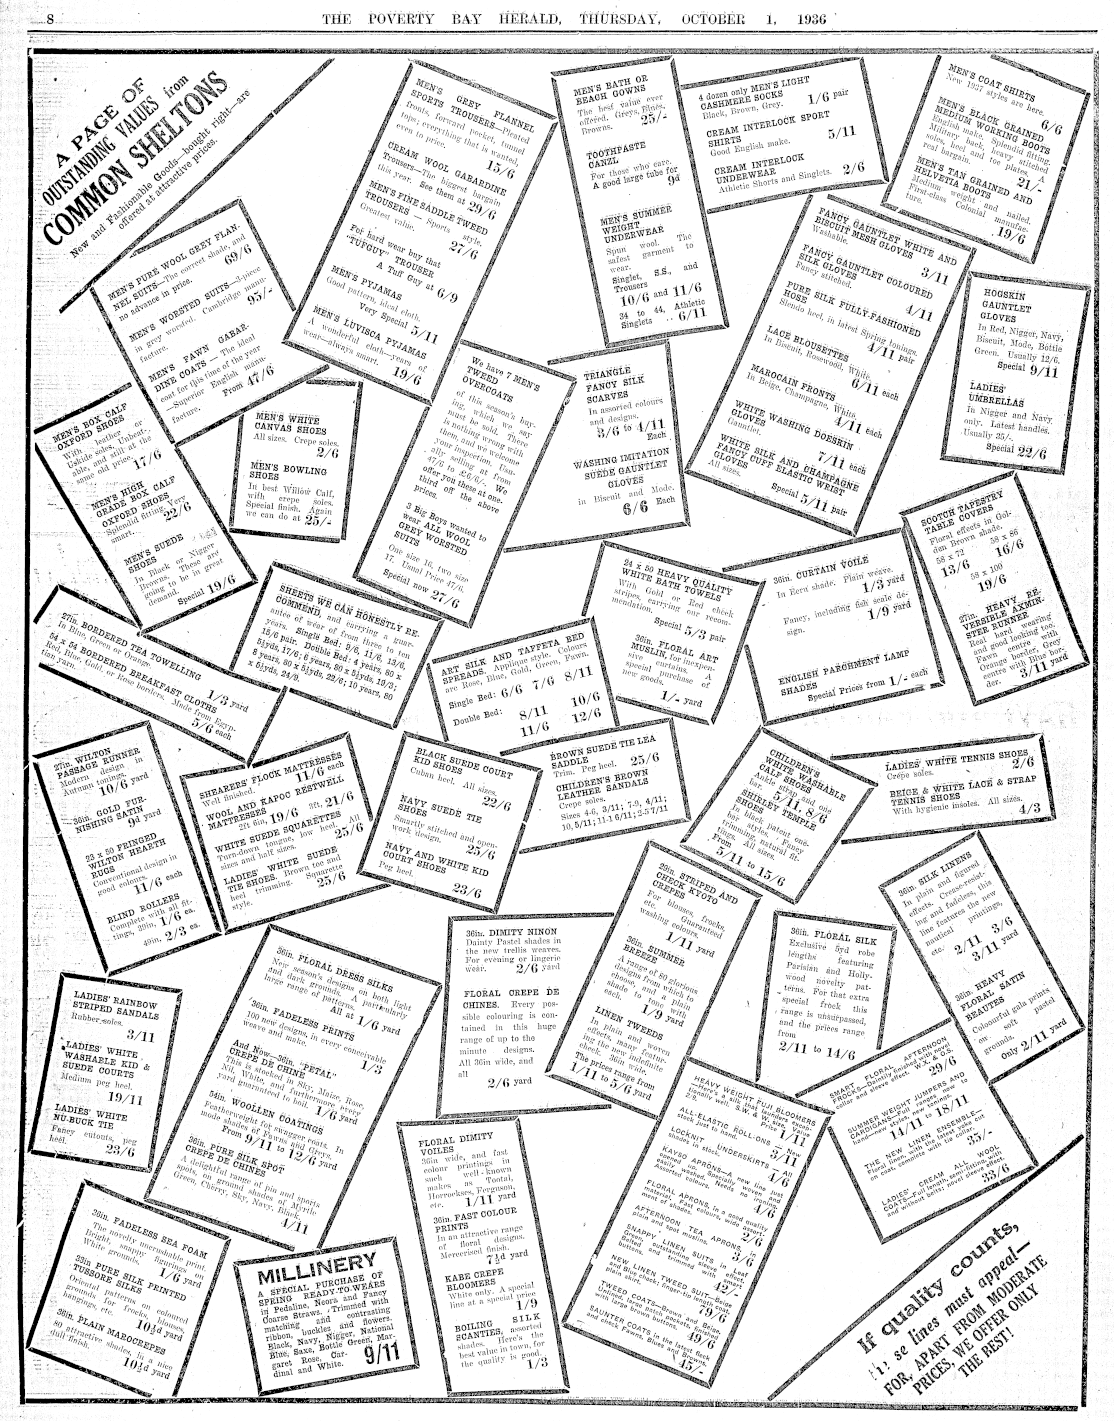 8
THE POVERTY BAY HERALD, THURSDAY, OCTOBER 1, 1936
A PAGE OF
OUTSTANDING VALUES from
COMMON SHELTONS
New and Fashionable Goods—bought right—are
offered at attractive prices.
MEN'S PURE WOOL GREY FLAN-
NEL SUITS—The correct shade, and
no advance in price. 69/6
MEN'S WORSTED SUITS—3-piece
in grey worsted. Cambridge manu-
facture. 95/-
MEN'S FAWN GABAR-
DINE COATS—The ideal
coat for this time of the year
—Superior English manu-
facture. From 47/6
MEN'S GREY FLANNEL
SPORTS TROUSERS—Pleated
fronts, forward pocket, tunnel
tops; everything that is wanted,
even to price. 15/6
CREAM WOOL GABARDINE
Trousers—The biggest bargain
this year. See them at 29/6
MEN'S FINE SADDLE TWEED
TROUSERS — Sports style.
Greatest value. 27/6
For hard wear buy that
"TUFGUY" TROUSER
A Tuff Guy at 6/9
MEN'S PYJAMAS
Good pattern, ideal cloth.
Very Special 5/11
MEN'S LUVISCA PYJAMAS
A wonderful cloth—years of
wear—always smart. 19/6
MEN'S BATH OR
BEACH GOWNS
The best value ever
offered. Greys, Blues,
Browns. 25/-
TOOTHPASTE
CANZL
For those who care.
A good large tube for
9d
MEN'S SUMMER
WEIGHT
UNDERWEAR
Spun wool. The
safest garment to
wear.
Singlet, S.S., and
Trousers
10/6 and 11/6
34 to 44, Athletic
Singlets .. 6/11
4 dozen only MEN'S LIGHT
CASHMERE SOCKS
Black, Brown, Grey. 1/6 pair
CREAM INTERLOCK SPORT
SHIRTS 5/11
Good English make.
CREAM INTERLOCK
UNDERWEAR
Athletic Shorts and Singlets. 2/6
MEN'S COAT SHIRTS
New 1937 styles are here.
6/6
MEN'S BLACK GRAINED
MEDIUM WORKING BOOTS
English make. Splendid fitting.
Military back, heavy stitched
soles, heel and toe plates. A
real bargain. 21/-
MEN'S TAN GRAINED AND
HELVETIA BOOTS
Medium weight and nailed.
First-class Colonial manufac-
ture. 19/6
FANCY GAUNTLET WHITE AND
BISCUIT MESH GLOVES
Washable. 3/11
FANCY GAUNTLET COLOURED
SILK GLOVES
Fancy stitched. 4/11
PURE SILK FULLY-FASHIONED
HOSE
Slendo heel, in latest Spring tonings.
4/11 pair
LACE BLOUSETTES
In Biscuit, Rosewood, White.
6/11 each
MAROCAIN FRONTS
In Beige, Champagne, White.
4/11 each
WHITE WASHING DOESKIN
GLOVES
Gauntlet. 7/11 each
WHITE SILK AND CHAMPAGNE
FANCY CUFF ELASTIC WRIST
GLOVES
All sizes.
Special 5/11 pair
HOGSKIN
GAUNTLET
GLOVES
In Red, Nigger, Navy,
Biscuit, Mode, Bottle
Green. Usually 12/6.
Special 9/11
LADIES'
UMBRELLAS
In Nigger and Navy
only. Latest handles.
Usually 25/-.
Special 22/6
MEN'S BOX CALF
OXFORD SHOES
With leather or
Uskide soles. Unbeat-
able, and still at the
same old price. 17/6
MEN'S HIGH
GRADE BOX CALF
OXFORD SHOES
Splendid fitting. Very
smart. 22/6
MEN'S SUEDE
SHOES
In Black or Nigger
Browns. These are
going to be in great
demand.
Special 19/6
MEN'S WHITE
CANVAS SHOES
All sizes. Crepe soles.
2/6
MEN'S BOWLING
SHOES
In best Willow Calf,
with crepe soles.
Special finish. Again
we can do at 25/-
We have 7 MEN'S
TWEED
OVERCOATS
of this season's buy-
ing, which we say
must be sold. There
is nothing wrong with
them, and we welcome
your inspection. Usu-
ally selling at from
47/6 to £6/6/-. We
offer you these at one-
third off the above
prices.
3 Big Boys wanted to
wear ALL WOOL
GREY WORSTED
SUITS
One size 16, two size
17. Usual Price 47/6.
Special now 27/6
TRIANGLE
FANCY SILK
SCARVES
In assorted colours
and designs.
3/6 to 4/11
Each
WASHING IMITATION
SUEDE GAUNTLET
GLOVES
in Biscuit and Mode.
6/6 Each
SCOTCH TAPESTRY
TABLE COVERS
Floral effects in Gol-
den Brown shade.
58 x 72 58 x 86
13/6 16/6
58 x 100
19/6
27in. HEAVY RE-
VERSIBLE AXMIN-
STER RUNNER
Real hard wearing
and good looking too.
Fawn centre with
Orange border, Grey
centre with Blue bor-
der. 3/11 yard
27in. BORDERED TEA TOWELLING
in Blue, Green or Orange.
1/3 yard
54 x 54 BORDERED BREAKFAST CLOTHS
Red, Blue, Gold, or Rose borders. Made from Egyp-
tian yarn. 5/6 each
SHEETS WE CAN HONESTLY RE-
COMMEND, and carrying a guar-
antee of wear of from three to ten
years. Single Bed: 9/6, 11/6, 13/6,
15/6 pair. Double Bed: 4 years, 80 x
5½yds, 17/6; 6 years, 80 x 5½yds, 19/3;
8 years, 80 x 5½yds, 22/6; 10 years, 80
x 5½yds, 24/9.
24 x 50 HEAVY QUALITY
WHITE BATH TOWELS
With Gold or Red check
stripes, carrying our recom-
mendation.
Special 5/3 pair
36in. FLORAL ART
MUSLIN, for inexpen-
sive curtains. A
special purchase of
new goods.
1/- yard
36in. CURTAIN VOILE
In Ecru shade. Plain weave.
1/3 yard
Fancy, including fish scale de-
sign. 1/9 yard
ENGLISH PARCHMENT LAMP
SHADES
Special Prices from 1/- each
ART SILK AND TAFFETA BED
SPREADS. Applique style. Colours
are Rose, Blue, Gold, Green, Fawn.
Single Bed: 6/6 7/6 8/11
10/6
Double Bed: 8/11
11/6 12/6
27in. WILTON
PASSAGE RUNNER
Modern design in
Autumn tonings.
10/6 yard
36in. GOLD FUR-
NISHING SATIN
9d yard
23 x 50 FRINGED
WILTON HEARTH
RUGS
Conventional design in
good colours.
11/6 each
BLIND ROLLERS
Complete with all fit-
tings, 39in. 1/6 ea.
49in. 2/3 ea.
SHEARERS' FLOCK MATTRESSES
Well finished. 11/6 each
WOOL AND KAPOC RESTWELL
MATTRESSES 3ft. 21/6
2ft 6in. 19/6
WHITE SUEDE SQUARETTES
Turn-down tongue, low heel. All
sizes and half sizes. 25/6
LADIES' WHITE SUEDE
TIE SHOES. Brown toe and
heel trimming. Squarette
style. 25/6
BLACK SUEDE COURT
KID SHOES
Cuban heel. All sizes.
22/6
NAVY SUEDE TIE
SHOES
Smartly stitched and open-
work design. 25/6
NAVY AND WHITE KID
COURT SHOES
Peg heel. 23/6
BROWN SUEDE TIE LEA
SADDLE
Trim. Peg heel. 25/6
CHILDREN'S BROWN
LEATHER SANDALS
Crepe soles.
Sizes 4-6, 3/11; 7-9, 4/11;
10, 5/11; 11-1 6/11; 2-5 7/11
CHILDREN'S
WHITE WASHABLE
CALF SHOES
Ankle strap and one
bar. 5/11, 8/6
SHIRLEY TEMPLE
SHOES
In black patent one-
bar styles. Fancy
trimming, natural fit-
ting. All sizes.
From
5/11 to 15/6
LADIES' WHITE TENNIS SHOES
Crêpe soles. 2/6
BEIGE & WHITE LACE & STRAP
TENNIS SHOES
With hygienic insoles. All sizes.
4/3
36in. SILK LINENS
In plain and figured
effects. Crease-resist-
ing and fadeless, this
line features the new
nautical printings,
etc. 2/11 3/6
3/11 yard
36in. HEAVY
FLORAL SATIN
BEAUTES
Colourful gala prints
on soft pastel
grounds.
Only 2/11 yard
29in. STRIPED AND
CHECK KYOTO
CREPES
For blouses, frocks,
etc. Guaranteed
washing colours.
1/11 yard
36in. SUMMER
BREEZE
A range of 80 glorious
designs from which to
choose, and a Robia
shade to tone with
each. 1/9 yard
LINEN TWEEDS
In plain and woven
effects, many featur-
ing the new window
check. 36in. wide.
The prices range from
1/11 to 5/6 yard
36in. DIMITY NINON
Dainty Pastel shades in
the new trellis weaves.
For evening or lingerie
wear. 2/6 yard
FLORAL CREPE DE
CHINES. Every pos-
sible colouring is con-
tained in this huge
range of up to the
minute designs.
All 36in wide, and
all
2/6 yard
36in. FLORAL SILK
Exclusive 5yd robe
lengths featuring
Parisian and Holly-
wood novelty pat-
terns. For that extra
special frock this
range is unsurpassed,
and the prices range
from
2/11 to 14/6
36in. FLORAL DRESS SILKS
New season's designs on both light
and dark grounds. A particularly
large range of patterns.
All at 1/6 yard
36in. FADELESS PRINTS
100 new designs, in every conceivable
weave and make. 1/3
And Now—36in. "PETAL"
CREPE DE CHINE
This is stocked in Sky, Maize, Rose,
Nil, White, and furthermore every
yard guaranteed to boil. 1/6 yard
54in. WOOLLEN COATINGS
Featherweight for summer coats. In
mode shades of Fawns and Greys.
From 9/11 to 12/6 yard
36in. PURE SILK SPOT
CREPE DE CHINES
A delightful range of pin and sports
spots, on ground shades of Myrtle
Green, Cherry, Sky, Navy, Black.
4/11
LADIES' RAINBOW
STRIPED SANDALS
Rubber soles.
3/11
LADIES' WHITE
WASHABLE KID &
SUEDE COURTS
Medium peg heel.
19/11
LADIES' WHITE
NU-BUCK TIE
Fancy cutouts, peg
heel. 23/6
36in. FADELESS SEA FOAM
The novelty uncrushable print.
Bright, snappy figurings on
White grounds. 1/6 yard
33in PURE SILK PRINTED
TUSSORE SILKS
Oriental patterns on coloured
grounds for frocks, blouses,
hangings, etc. 10½d yard
36in. PLAIN MAROCREPES
80 attractive shades, in a nice
dull finish. 10½d yard
MILLINERY
A SPECIAL PURCHASE OF
SPRING READY-TO-WEARS
in Pedaline, Neora and Fancy
Coarse Straws. Trimmed with
matching and contrasting
ribbon, buckles and flowers.
Black, Navy, Nigger, National
Blue, Saxe, Bottle Green, Mar-
garet Rose, Car-
dinal and White. 9/11
FLORAL DIMITY
VOILES
36in wide, and fast
colour printings in
such well-known
makes as Tootal,
Horrockses, Ferguson,
etc. 1/11 yard
36in. FAST COLOUR
PRINTS
In an attractive range
of floral designs.
Mercerised finish.
7½d yard
KABE CREPE
BLOOMERS
White only. A special
line at a special price
1/9
BOILING SILK
SCANTIES, assorted
shades. Here's the
best value in town, for
the quality is good.
1/3
HEAVY WEIGHT FUJI BLOOMERS
Price 1/11
ALL-ELASTIC ROLL-ONS
3/11
LOCKNIT UNDERSKIRTS
4/6
KAYSO APRONS—A new line just
4/6
FLORAL APRONS, in a good quality
2/6
AFTERNOON TEA APRONS, in
plain and spot muslins. 3/6
SNAPPY LINEN SUITS in Leaf
42/-
NEW LINEN TWEED SUIT—Beige
79/6
TWEED COATS—Brown and Beige.
49/6
SAUNTER COATS in the latest fleck
45/-
SMART FLORAL AFTERNOON
FROCKS
29/6
SUMMER WEIGHT JUMPERS AND
CARDIGANS—Full ranges now to
hand—new styles, new tonings.
14/11 to 18/11
THE NEW LINEN ENSEMBLE—
35/-
LADIES' CREAM ALL WOOL
COATS—Full length, tight fitting, with
and without belts; novel sleeve effect.
33/6
If quality counts,
these lines must appeal—
FOR, APART FROM MODERATE
PRICES, WE OFFER ONLY
THE BEST!